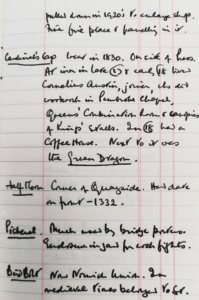 pulled down in 1920's to enlarge shop.
Nice fire place & panelling in it.
Cardinal's Cap here in 1830. On site of
An inn in late 17 & early 18 lived
Cornelius Austin, joiner, who did
woodwork in Pembroke Chapel,
Queens' Combination Room & canopies
of Kings' Stalls. In 18 had a
Coffee House. Next to it was
the Green Dragon.
Half Moon Corner of Quayside. Has date
on front – 1332.
Pickerel. Much used by bridge porters.
Enclosure in yard for cock fights.
Blue Boar Now Norwich Union. In
medieval times belonged to